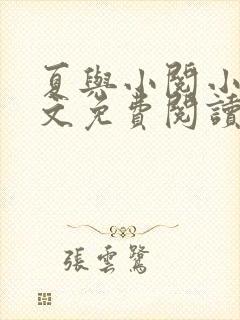 夏與小閱小
文免費閱讀
張雲鷺